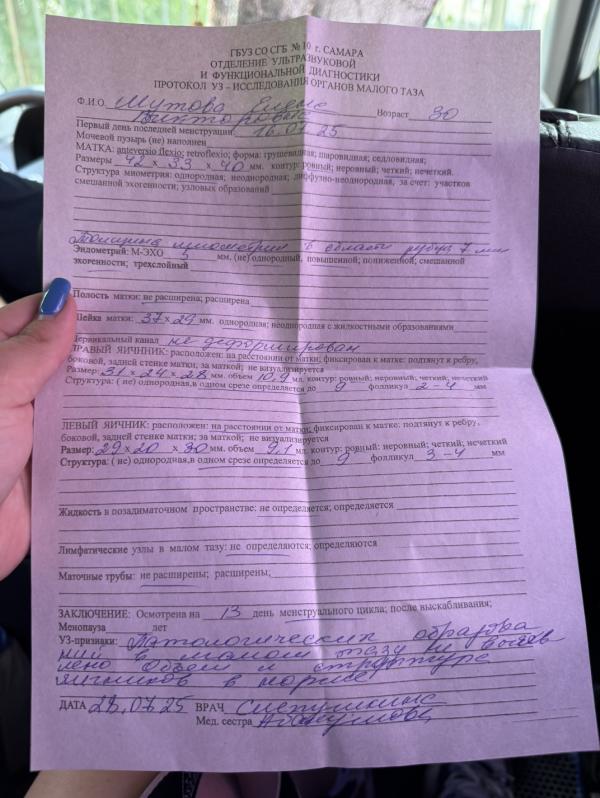 ГБУЗ СО СГБ № 10 г. САМАРА
ОТДЕЛЕНИЕ УЛЬТРАЗВУКОВОЙ
И ФУНКЦИОНАЛЬНОЙ ДИАГНОСТИКИ
ПРОТОКОЛ УЗ - ИССЛЕДОВАНИЯ ОРГАНОВ МАЛОГО ТАЗА
Ф.И.О Мутова Елена Возраст 30
Викторовна
Первый день последней менструации 16.07.25
Мочевой пузырь (не) наполнен
МАТКА: anteversio flexio; retroflexio; форма: грушевидная; шаровидная; седловидная;
Размеры 42 х 33 х 40 мм. контур: ровный; неровный; четкий; нечеткий.
Структура миометрия: однородная; неоднородная; диффузно-неоднородная, за счет: участков
смешанной эхогенности; узловых образований
Толщина миометрия в области рубца 7 мм
Эндометрий: М-ЭХО 5 мм, (не) однородный, повышенной; пониженной; смешанной
эхогенности; трехслойный
Полость матки: не расширена; расширена
Шейка матки: 37х29 мм. однородная; неоднородная с жидкостными образованиями
Цервикальный канал не деформирован
ПРАВЫЙ ЯИЧНИК: расположен: на расстоянии от матки; фиксирован к матке: подтянут к ребру,
боковой, задней стенке матки, за маткой; не визуализируется
Размер: 31 х 24 х 28 мм. объем 10,9 мл. контур: ровный; неровный; четкий, нечеткий
Структура: ( не) однородная,в одном срезе определяется до 9 фолликул 2-4 мм
ЛЕВЫЙ ЯИЧНИК: расположен: на расстоянии от матки; фиксирован к матке: подтянут к ребру,
боковой, задней стенке матки; за маткой; не визуализируется
Размер: 29 х 20 х 30 мм. объем 9,1 мл. контур: ровный: неровный; четкий, нечеткий
Структура: ( не) однородная,в одном срезе определяется до 9 фолликул 3-4 мм
Жидкость в позадиматочном пространстве: не определяется; определяется
Лимфатические узлы в малом тазу: не определяются; определяются
Маточные трубы: не расширены; расширены;
ЗАКЛЮЧЕНИЕ: Осмотрена на 13 день менструального цикла; после выскабливания;
Менопауза лет
УЗ-признаки: Патологических образова
ний в малом тазу не выяв
лено Объем и структура
яичников в норме
ДАТА 28.07.25 ВРАЧ
Мед. сестра